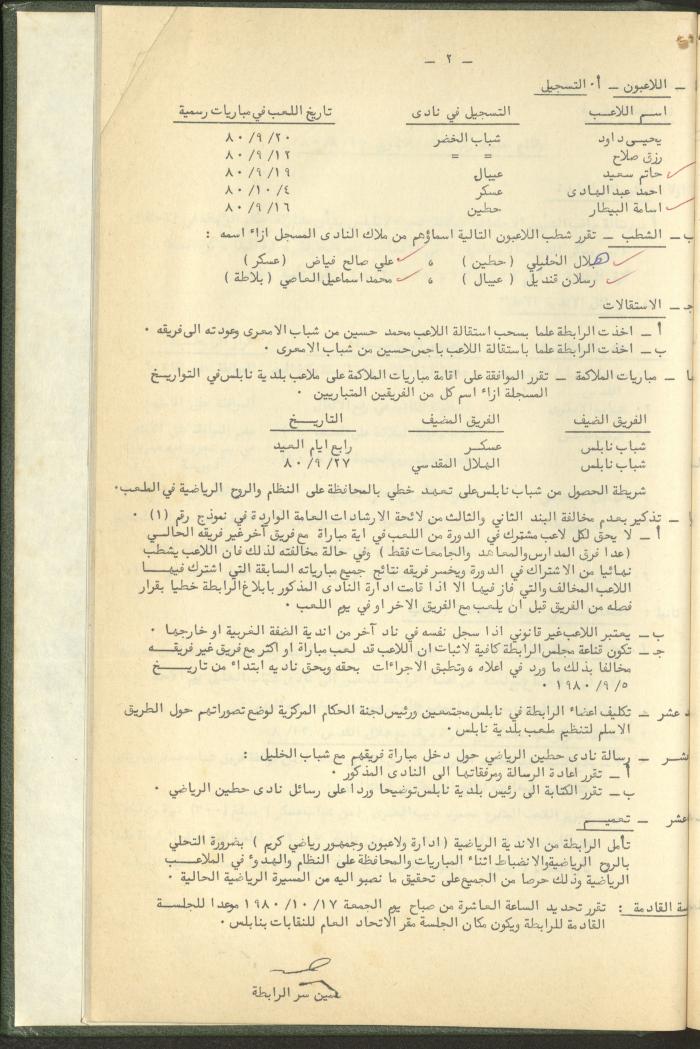 - ٢ -
ـ اللاعبون ـ أ٠ التسجيل
اسم اللاعب التسجيل في نادى تاريخ اللعب في مباريات رسمية
يحيى داود شباب الخضر ٢٠ /٩/ ٨٠
رزق صلاح = = ١٢ /٩/ ٨٠
حاتم سعيد عيبال ١٩ /٩/ ٨٠
احمد عبد الهادى عسكر ٤ /١٠/ ٨٠
اسامة البيطار حطين ١٦ /٩/ ٨٠
ب ـ الشطب ـ تقرر شطب اللاعبون التالية اسماؤهم من ملاك النادى المسجل ازاء اسمه :
هلال الخليلي ( حطين ) ، علي صالح فياض ( عسكر )
رسلان قنديلي ( عيبال ) ، محمد اسماعيل العاصي ( بلاطة )
جـ ـ الاستقالات
أ ـ اخذت الرابطة علما بسحب استقالة اللاعب محمد حسين من شباب الامعرى وعودته الى فريقه ٠
ب ـ اخذت الرابطة علما باستقالة اللاعب باجس حسين من شباب الامعرى ٠
ـ مباريات الملاكمة ـ تقرر الموافقة على اقامة مباريات الملاكمة على ملاعب بلدية نابلس في التواريخ
المسجلة ازاء اسم كل من الفريقين المتباريين ٠
الفريق الضيف الفريق المضيف التاريخ
شباب نابلس عسكر رابع ايام العيد
شباب نابلس الهلال المقدسي ٢٧ /٩/ ٨٠
شريطة الحصول من شباب نابلس على تعهد خطي بالمحافظة على النظام والروح الرياضية في الملعب٠
ـ تذكير بعدم مخالفة البند الثاني والثالث من لائحة الارشادات العامة الواردة في نموذج رقم (١) ٠
أ ـ لا يحق لكل لاعب مشترك في الدورة من اللعب في اية مباراة مع فريق آخر غير فريقه الحالي
(عدا فرق المدارس والمعاهد والجامعات فقط ) وفي حالة مخالفته لذلك فان اللاعب يشطب
نهائيا من الاشتراك في الدورة ويخسر فريقه نتائج جميع مبارياته السابقة التي اشترك فيها
اللاعب المخالف والتي فاز فيها الا اذا قامت ادارة النادى المذكور بابلاغ الرابطة خطيا بقرار
فصله من الفريق قبل ان يلعب مع الفريق الاخر او في يوم اللعب ٠
ب ـ يعتبر اللاعب غير قانوني اذا سجل نفسه في ناد آخر من اندية الضفة الغربية او خارجها ٠
جـ ـ تكون قناعة مجلس الرابطة كافية لاثبات ان اللاعب قد لعب مباراة او اكثر مع فريق غير فريقه
مخالفا بذلك ما ورد في اعلاه ، وتطبق الاجراءات بحقه وبحق ناديه ابتداء من تاريخ
٥ /٩/ ١٩٨٠ ٠
عشر ـ تكليف اعضاء الرابطة في نابلس مجتمعين ورئيس لجنة الحكام المركزية لوضع تصوراتهم حول الطريق
الاسلم لتنظيم ملعب بلدية نابلس ٠
ـ رسالة نادى حطين الرياضي حول دخل مباراة فريقهم مع شباب الخليل :
أ ـ تقرر اعادة الرسالة ومرفقاتها الى النادى المذكور ٠
ب ـ تقرر الكتابة الى رئيس بلدية نابلس توضيحا وردا على رسائل نادى حطين الرياضي ٠
عشر ـ تعميم ـ
تأمل الرابطة من الاندية الرياضية ( ادارة ولاعبون وجمهور رياضي كريم ) بضرورة التحلي
بالروح الرياضية والانضباط اثناء المباريات والمحافظة على النظام والهدوء في الملاعب
الرياضية وذلك حرصا من الجميع على تحقيق ما نصبو اليه من المسيرة الرياضية الحالية ٠
القادمة : تقرر تحديد الساعة العاشرة من صباح يوم الجمعة ١٧ /١٠/ ١٩٨٠ موعدا للجلسة
القادمة للرابطة ويكون مكان الجلسة مقر الاتحاد العام للنقابات بنابلس ٠
امين سر الرابطة